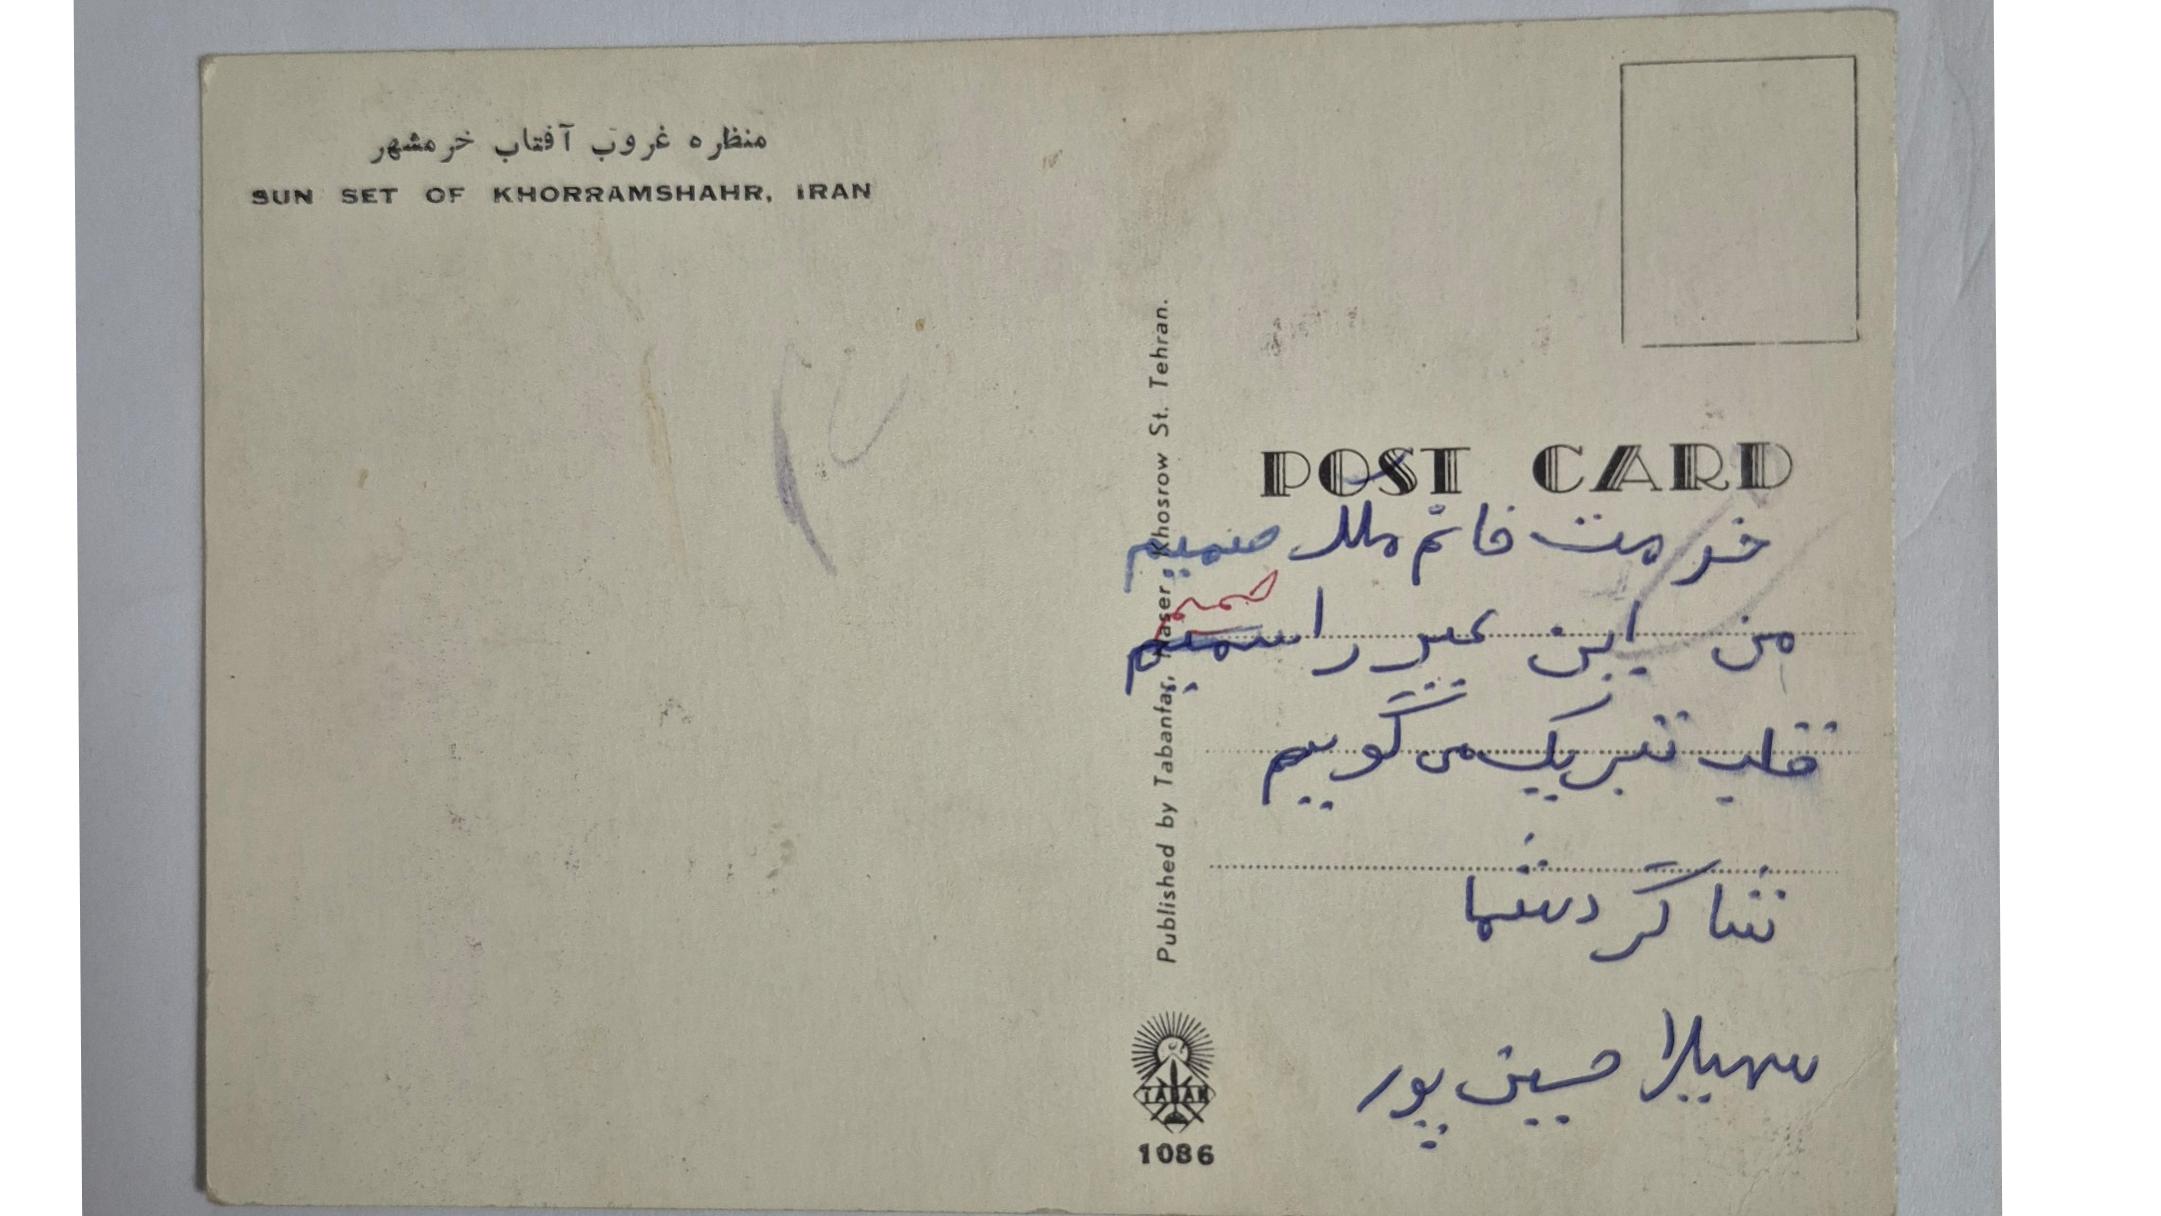 منظره غروب آفتاب خرمشهر
SUN SET OF KHORRAMSHAHR, IRAN
Published by Tabanfar, Naser Khosrow St. Tehran.
POST CARD
خدمت خانم ملک صمیم
من این عید را سمیم
صمیم
قلب تبریک می گوییم
شاگرد شما
سهیلا حسین پور
TABAN
1086